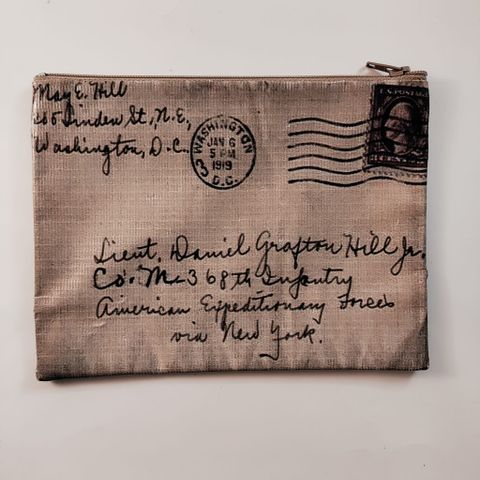 May E. Hill
Linden St., N.E.,
Washington, D.C.
WASHINGTON
JAN 6
5 PM
1919
D.C.
U.S. POSTAGE
Lieut. Daniel Grafton Hill Jr.
Co. M-368th Infantry
American Expeditionary Forces
via New York.